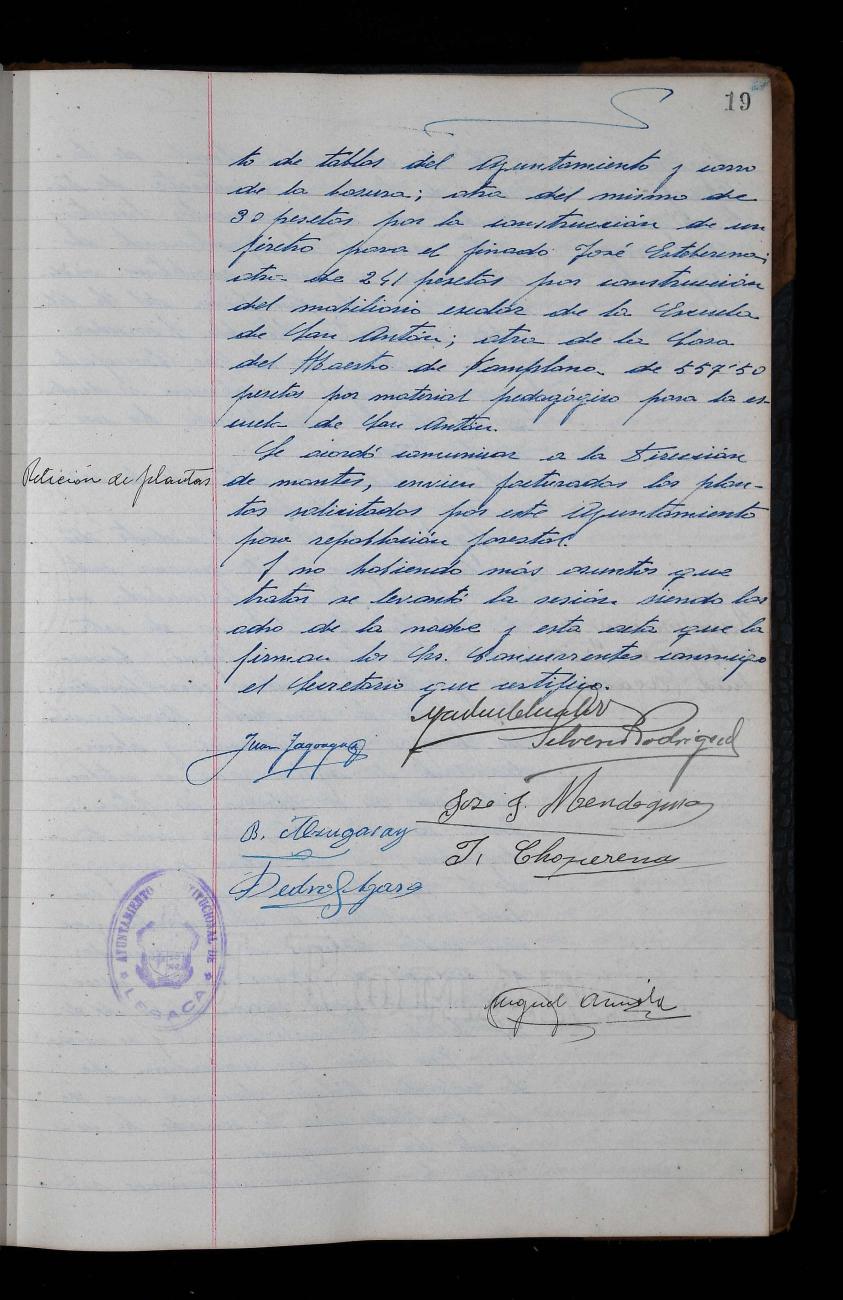 19
to de tablas del Ayuntamiento y carro
de la basura; otra del mismo de
30 pesetas por la construcción de un
féretro para el finado José Estberena;
otra de 241 pesetas por construcción
del mobiliario escolar de la Escuela
de San Antón; otra de la Casa
del Maestro de Pamplona de 557'50
pesetas por material pedagógico para la es-
cuela de San Antón.
Petición de plantas
Se acordó comunicar a la Dirección
de montes, envien facturadas las plan-
tas solicitadas por este Ayuntamiento
para repoblación forestal.
Y no habiendo más asuntos que
tratar se levantó la sesión siendo las
ocho de la noche y esta acta que la
firman los Srs. Concurrentes conmigo
el Secretario que certifico.
Silverio Rodriguez
Juan
José J. Mendaguia
B.
T. Choperena
Pedro
AYUNTAMIENTO CONSTITUCIONAL DE
LESACA
Miguel